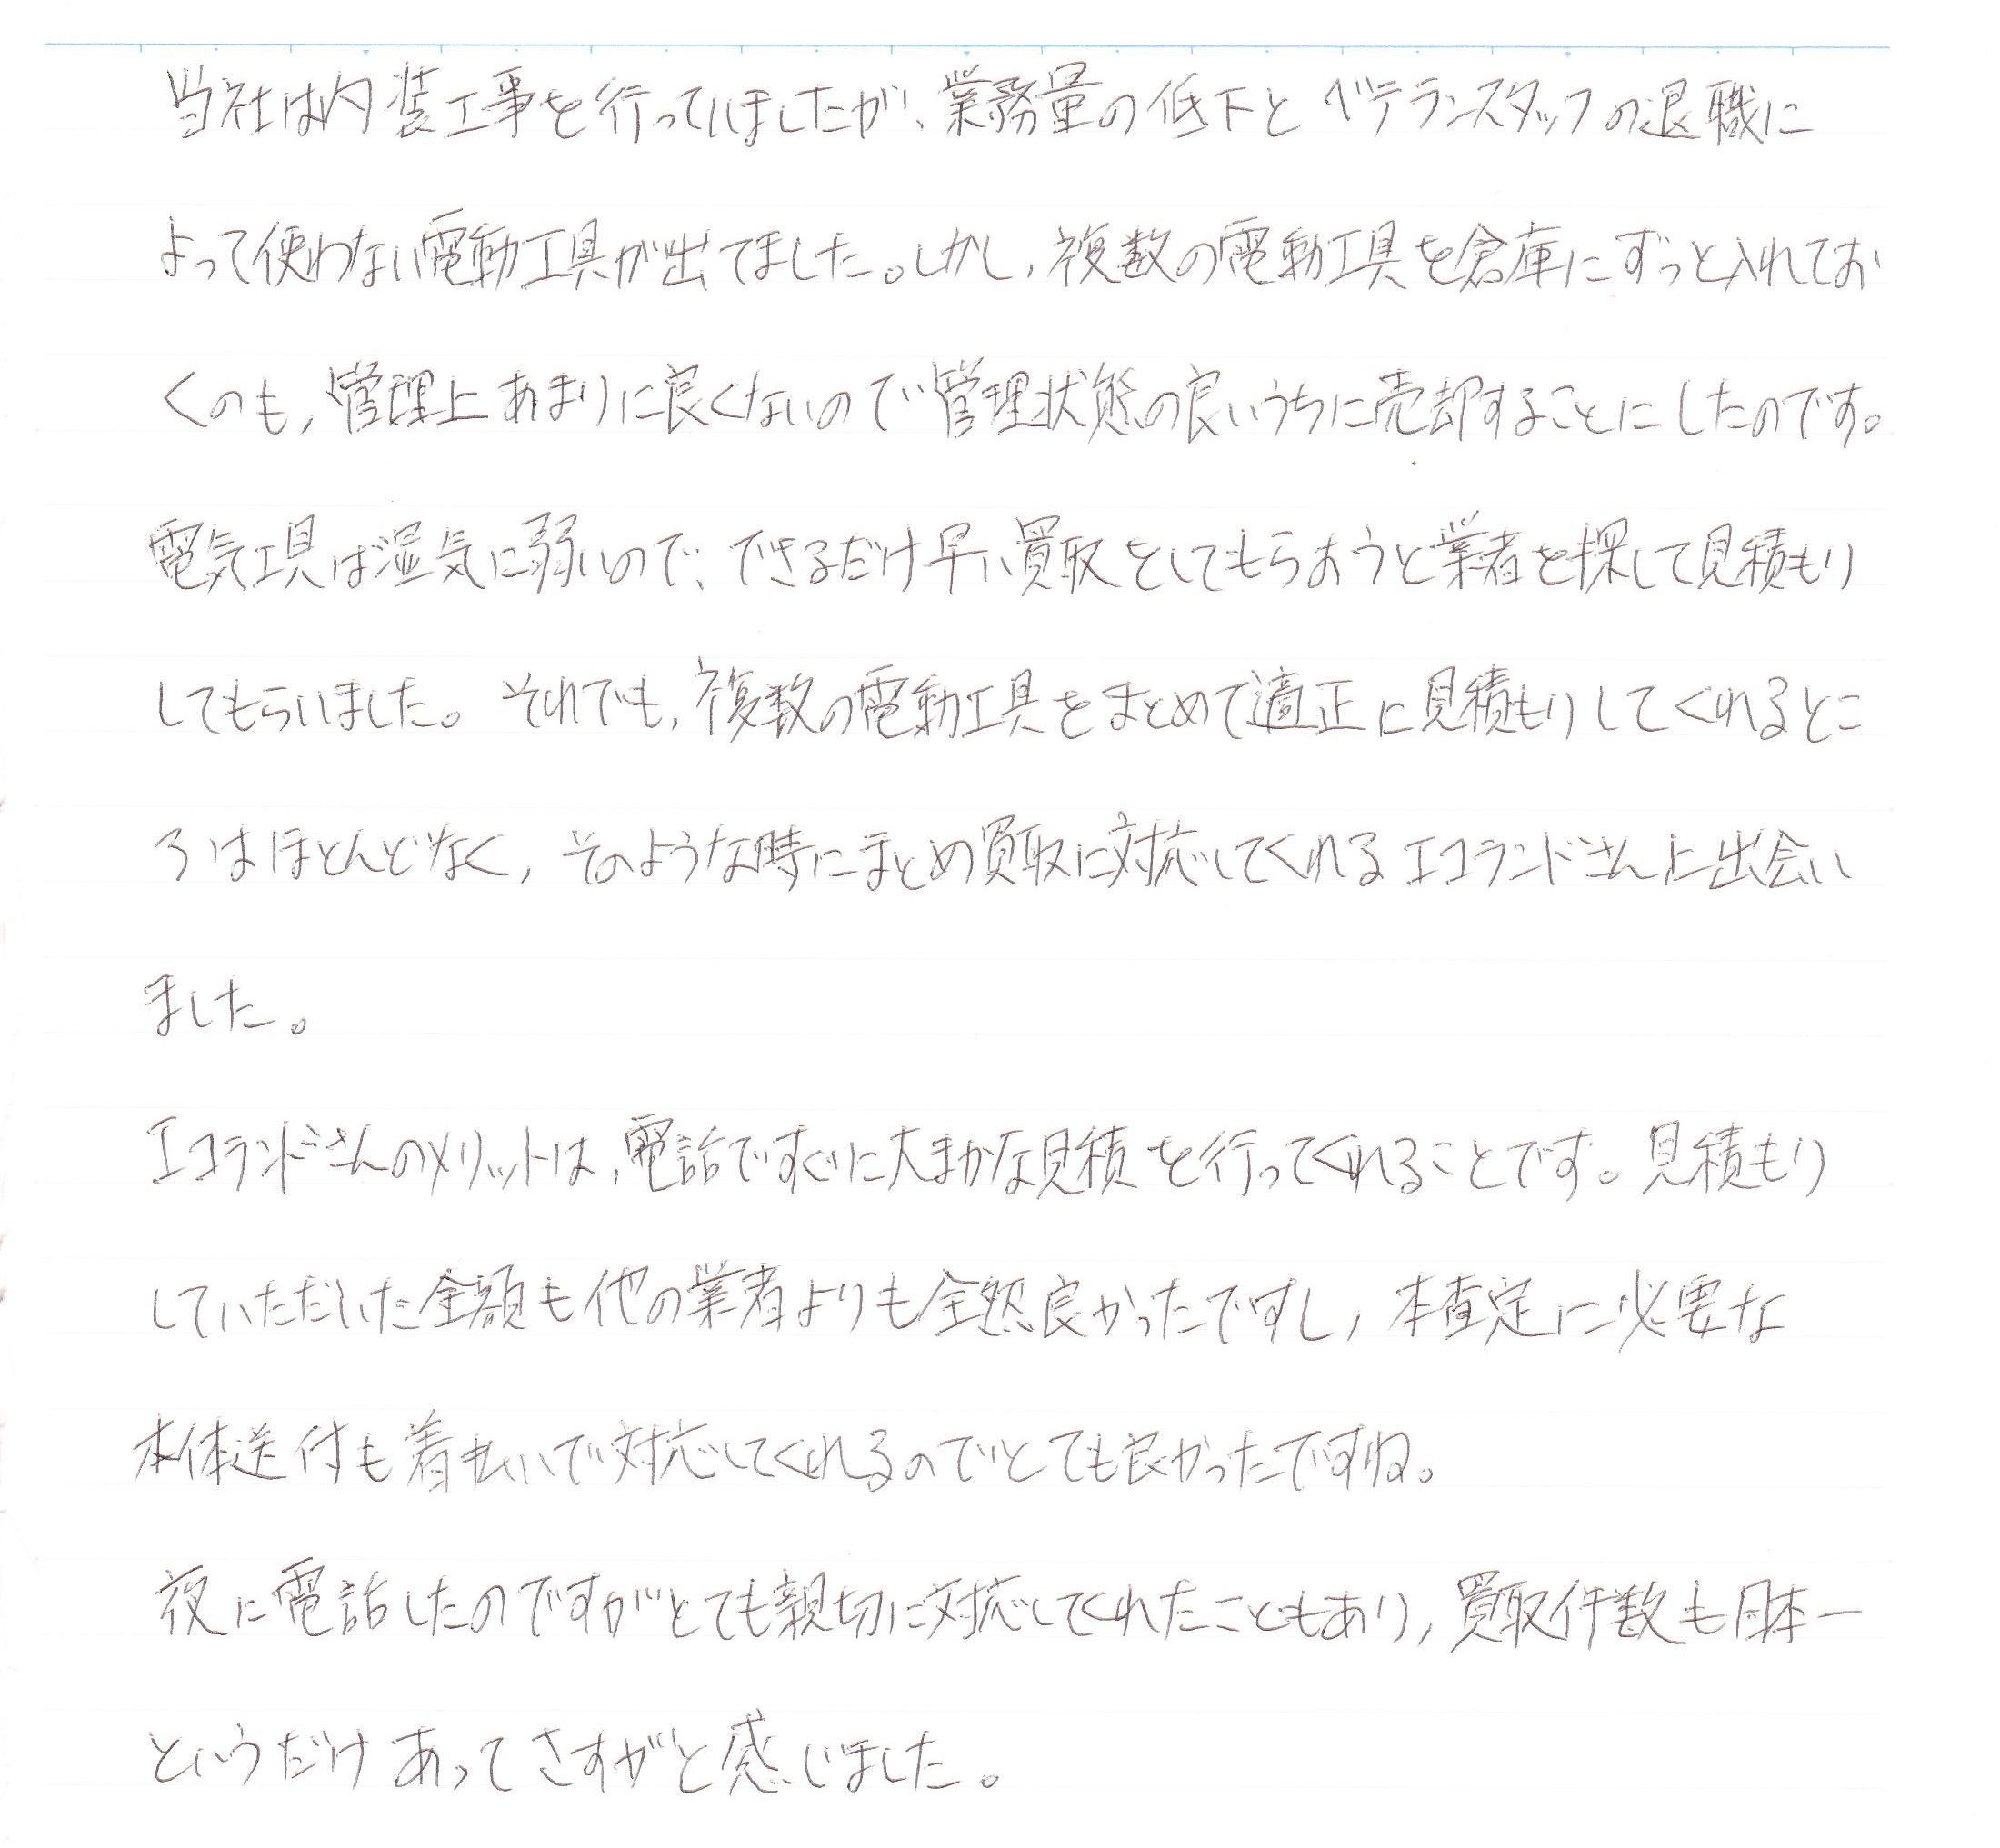 当社は内装工事を行っていましたが、業務量の低下とベテランスタッフの退職に
よって使わない電動工具が出てました。しかし、複数の電動工具を倉庫にずっと入れてお
くのも、管理上あまりに良くないので管理状態の良いうちに売却することにしたのです。
電気工具は湿気に弱いので、できるだけ早い買取をしてもらおうと業者を探して見積もり
してもらいました。それでも、複数の電動工具をまとめて適正に見積もりしてくれるとこ
ろはほとんどなく、そのような時にまとめ買取に対応してくれるエコランドさんに出会い
ました。
エコランドさんのメリットは、電話ですぐに大まかな見積を行ってくれることです。見積もり
していただいた金額も他の業者よりも全然良かったですし、本査定に必要な
本体送付も着払いで対応してくれるのでとても良かったですね。
夜に電話したのですがとても親切に対応してくれたこともあり、買取件数も日本一
というだけあってさすがと感じました。